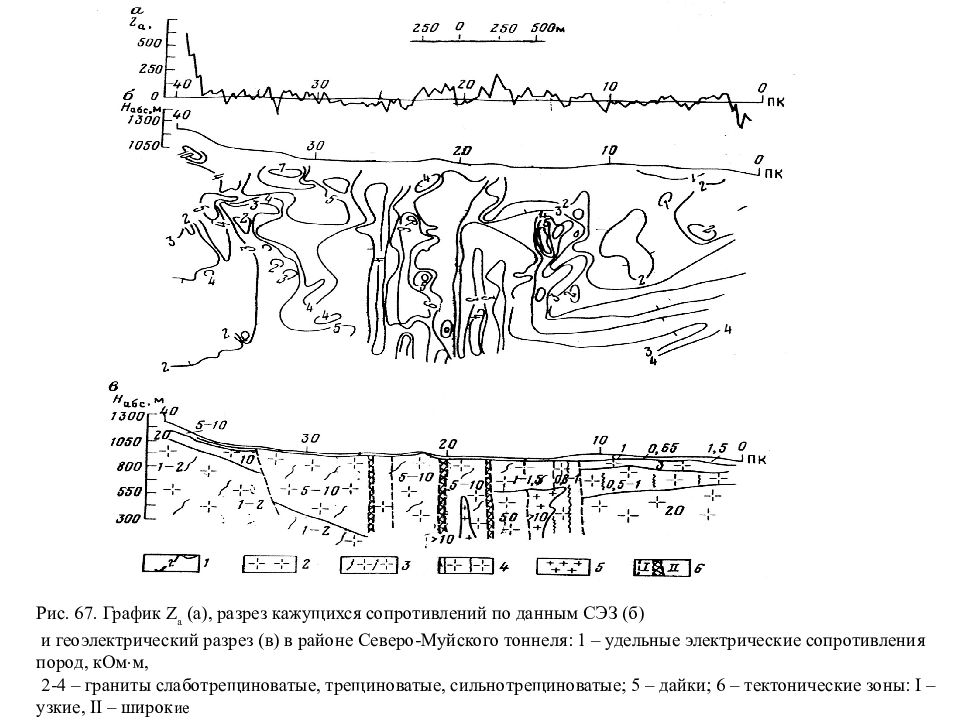 а
Zа.
500
250
0
250 0 250 500м
40 30 20 10 0
ПК
б
Набс,м
1300
1050
40 30 20 10 0
ПК
7 5 4 1 2
2 3 4 3 2
2 3 4 2 2 3 4 5 2
2 2 3 4 4
в
Набс.м
1300
1050
800
550
300
40 30 20 10 0
ПК
5-10 1 0,65 1,5
20 10
1-2 5-10 5-10 5-10 0,5-1
1-2 1-2 >10 >10 20
1 2 3 4 5 I II 6
Рис. 67. График Zа (а), разрез кажущихся сопротивлений по данным СЭЗ (б)
и геоэлектрический разрез (в) в районе Северо-Муйского тоннеля: 1 – удельные электрические сопротивления
пород, кОм·м,
2-4 – граниты слаботрещиноватые, трещиноватые, сильнотрещиноватые; 5 – дайки; 6 – тектонические зоны: I –
узкие, II – широкие